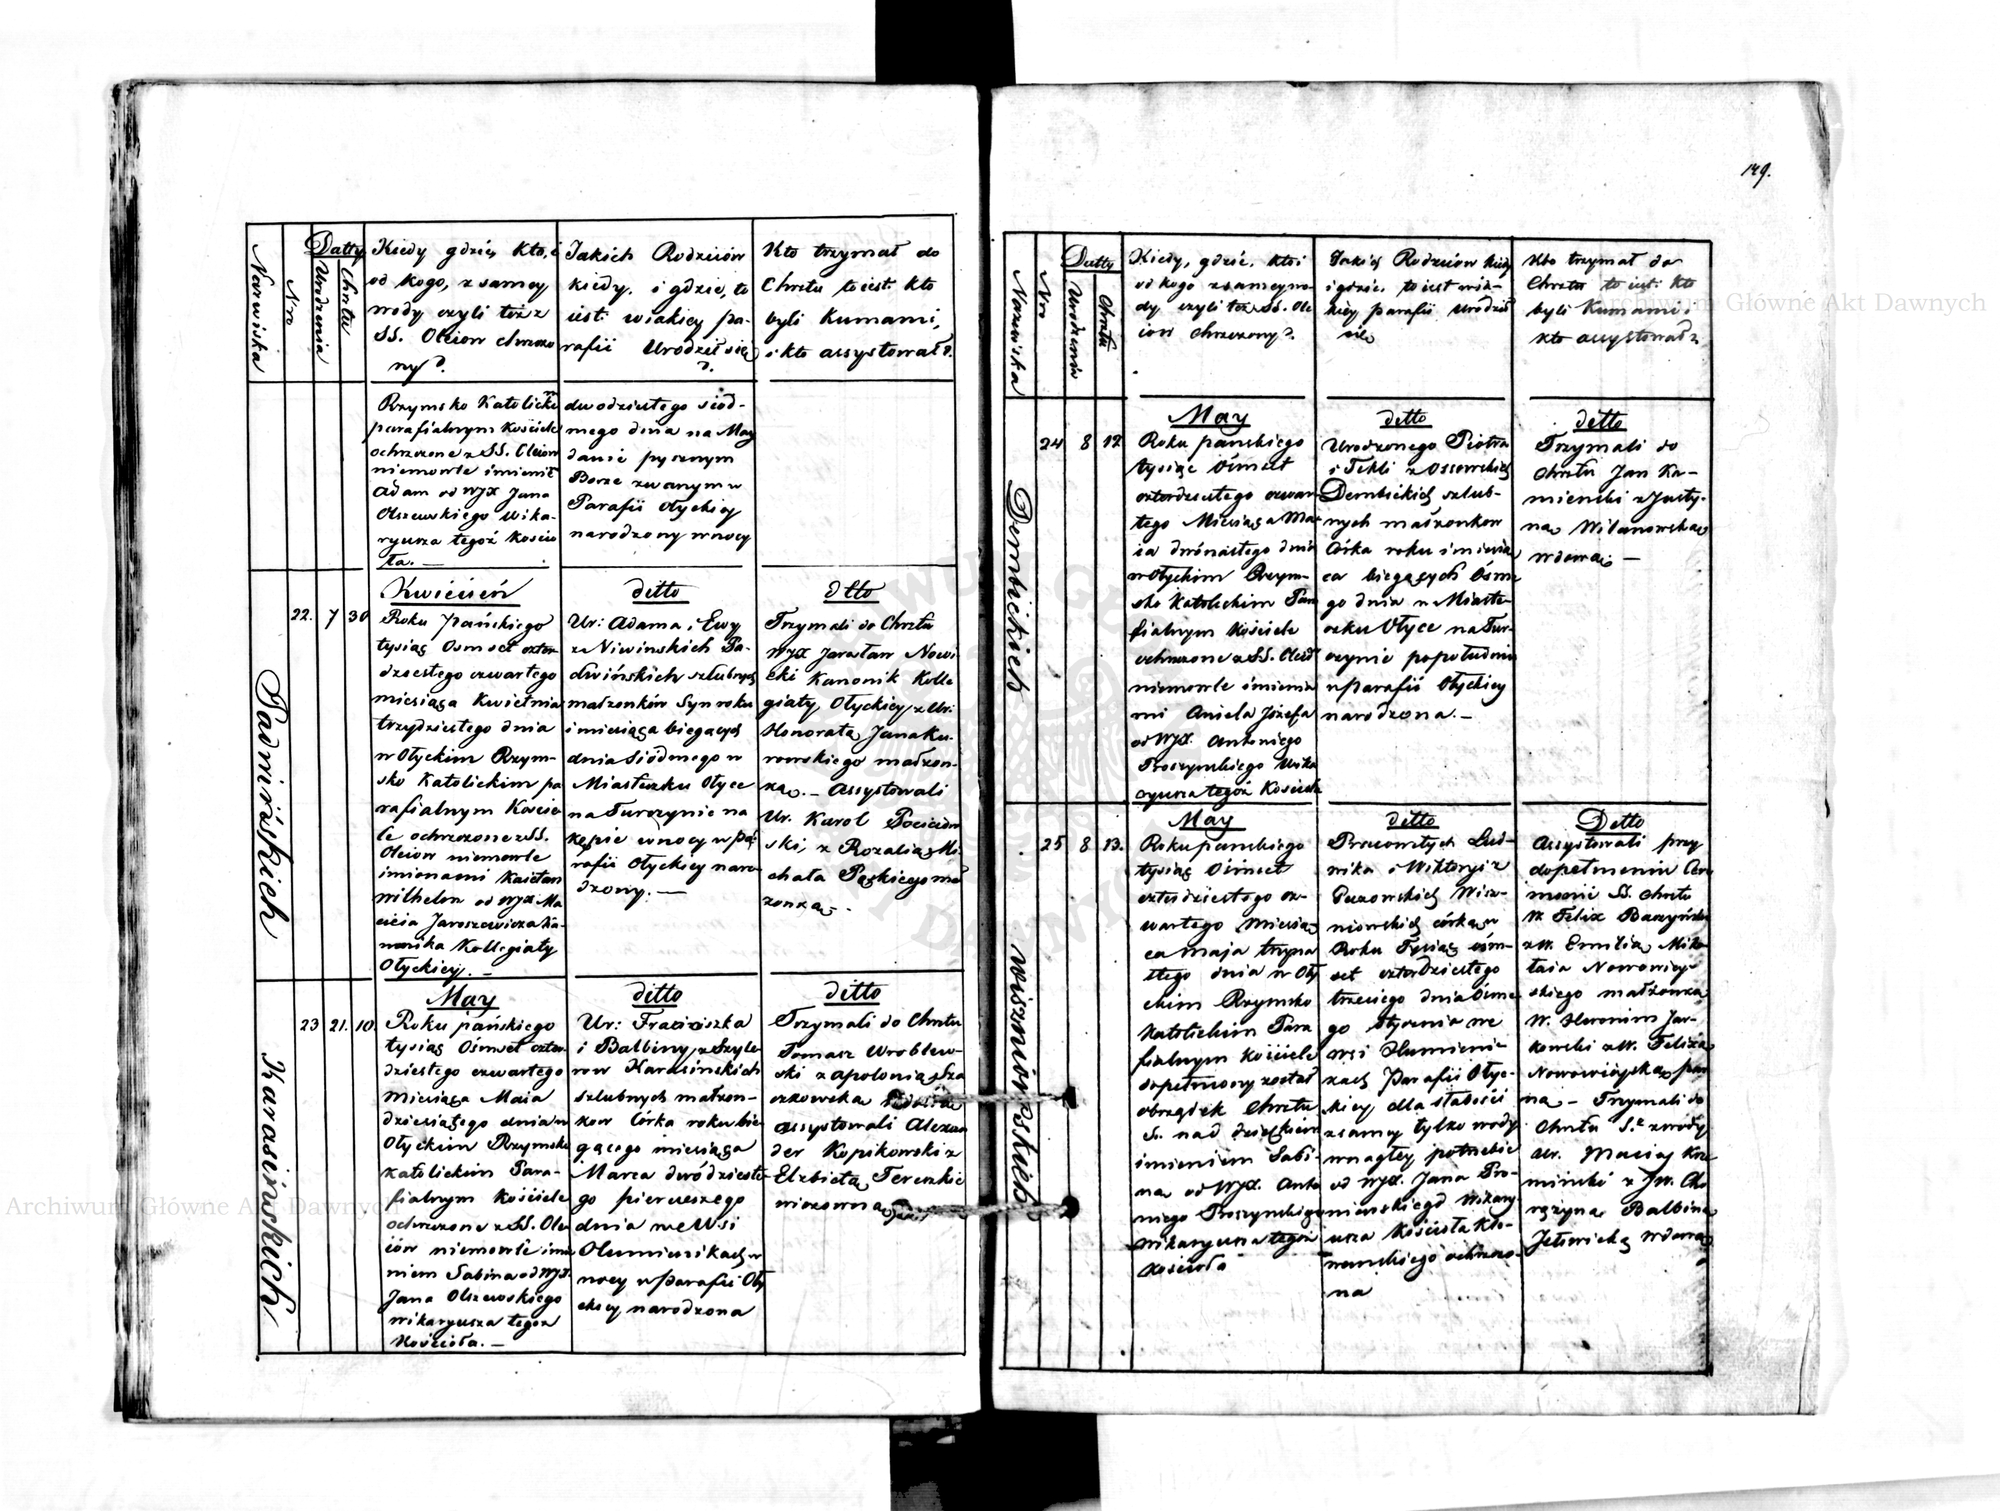 149.
Nazwiska
Nro
Datty
Urodzenia
Chrztu
Kiedy gdzie, kto, i
od kogo, z samey
wody czyli też z
SS. Oleiow chrzczo
ny?
Jakich Rodziców
kiedy, i gdzie, to
iest: w iakiey pa-
rafii Urodził się
?
Kto trzymał do
Chrztu to iest: kto
byli Kumami,
i kto assystował?
Rzymsko Katolickim
parafialnym Kościele
ochrzczone z SS. Oleiow
niemowle imieniem
Adam od WJX Jana
Olszewskiego Wika-
ryusza tegoż Kościo
ła. —
dwódziestego siód-
mego dnia na May
danie pysznym
Borze zwanym w
Parafii Ołyckiey
narodzony w nocy
Padwińskich
22. 7 30
Kwiecień
Roku Pańskiego
tysiąc Ośmset czter
dziestego czwartego
miesiąca Kwietnia
trzydziestego dnia
w Ołyckim Rzym-
sko Katolickim pa
rafialnym Kościo
le ochrzczone z SS.
Oleiow niemowle
imionami Kaietan
Wilhelm od WJX Ma
cieia Jaroszewicza Ka-
nonika Kollegiaty
Ołyckiey. —
ditto
Ur: Adama i Ewy
z Niwinskich Pa-
dwińskich szlubnych
małzonków Syn roku
i miesiąca biegących
dnia Siódmego w
Miasteczku Ołyce
na Turczynie na
kępie w nocy w pa-
rafii Ołyckiey naro
dzony. —
dtto
Trzymali do Chrztu
WJX Jarosław Nowi
cki Kanonik Kolle
giaty Ołyckiey, z Ur:
Honoratą Jana Ku-
rowskiego małzon-
ką. — Assystowali
Ur. Karol
ski, z Rozalią Mi
chała Paskiego mał
zonką. -
Karasińskich
23 21. 10.
May
Roku pańskiego
tysiąc Ośmset czter-
dziestego czwartego
Miesiąca Maia
dziesiątego dnia w
Ołyckim Rzymsko
katolickim Para-
fialnym Kościele
ochrzczone z SS. Ole
iów niemowle imie
niem Sabina od WJX.
Jana Olszewskiego
wikaryusza tegoż
Kościoła. —
ditto
Ur: Franciszka
i Balbiny z Szyle-
row Karasińskich
szlubnych małzon-
kow Córka roku bie
gącego miesiąca
Marca dwódzieste-
go pierwszego
dnia we Wsi
Ołumienikach w
nocy w parafii Oły
ckiey narodzona
ditto
Trzymali do Chrztu
Tomasz Wroblew-
ski z Apolonią
assystowali Alexan
der Kopikowski z
Elzbietą Tereszkie
wiczowną
Nazwiska
Nro
Datty
Urodzenia
Chrztu
Kiedy, gdzie, kto i
od kogo z samey wo
dy czyli też z SS. Ole
iow chrzczony?
Jakich Rodziców kiedy
i gdzie, to iest w ia-
kiey parafii urodził
sie
Kto trzymał do
Chrztu to iest: kto
byli Kumami i
kto assystował?
Dembickich
24 8 12
May
Roku pańskiego
tysiąc Ośmset
czterdziestego czwar
tego Miesiąca Ma-
ia dwónastego dnia
w Ołyckim Rzym-
sko Katolickim Para
fialnym Kościele
ochrzczone z SS. Oleiów
niemowle imiona
mi Aniela Józefa
od WJX. Antoniego
Proszynskiego Wika
ryusza tegoż Kościoła
ditto
Urodzonego Piotra
i Tekli z Ossowskich
Dembickich szlub-
nych małzonkow
Córka roku i miesią
ca biegących Osme
go dnia w Miaste-
czku Ołyce na Tur-
czynie popołudniu
w parafii Ołyckiey
narodzona. —
ditto
Trzymali do
Chrztu Jan Ka-
mienski z Justy-
ną Wilanowską
wdową. —
Wiszniówskich
25 8 13.
May
Roku pańskiego
tysiąc Ośmset
czterdziestego cz-
wartego miesią
ca maja trzyna
stego dnia w Oły
ckim Rzymsko
Katolickim Para
fialnym Kościele
dopełniony został
obrządek Chrztu
S. nad dzieckiem
imieniem Sabi-
na od WJX. Anto
niego Proszynskiego
Wikaryusza tegoż
Kościoła
ditto
Prawowitych Lud-
wika i Wiktoryi z
Wisz-
niowskich córka w
Roku Tysiąc ośm-
set czterdziestego
trzeciego dnia Osme
go Stycznia we
wsi
Parafii Ołyc-
kiey dla słabości
z samey tylko wody
w nagłey potrzebie
od WJX. Jana Pro-
Wikary-
usza Kościoła Kle-
wanskiego ochrzczo-
na
Ditto
Assystowali przy
dopełnieniu Cere
monii SS. Chrztu
W. Felix
z W. Emilią Miko-
łaia Nowowiey-
skiego małzonką
W. Hieronim Jar-
kowski z W. Felixą
Nowowieyską pan
ną — Trzymali do
Chrztu S. z wody
Ur. Maciey Krze
minski z
Balbiną
Jełowicką wdową